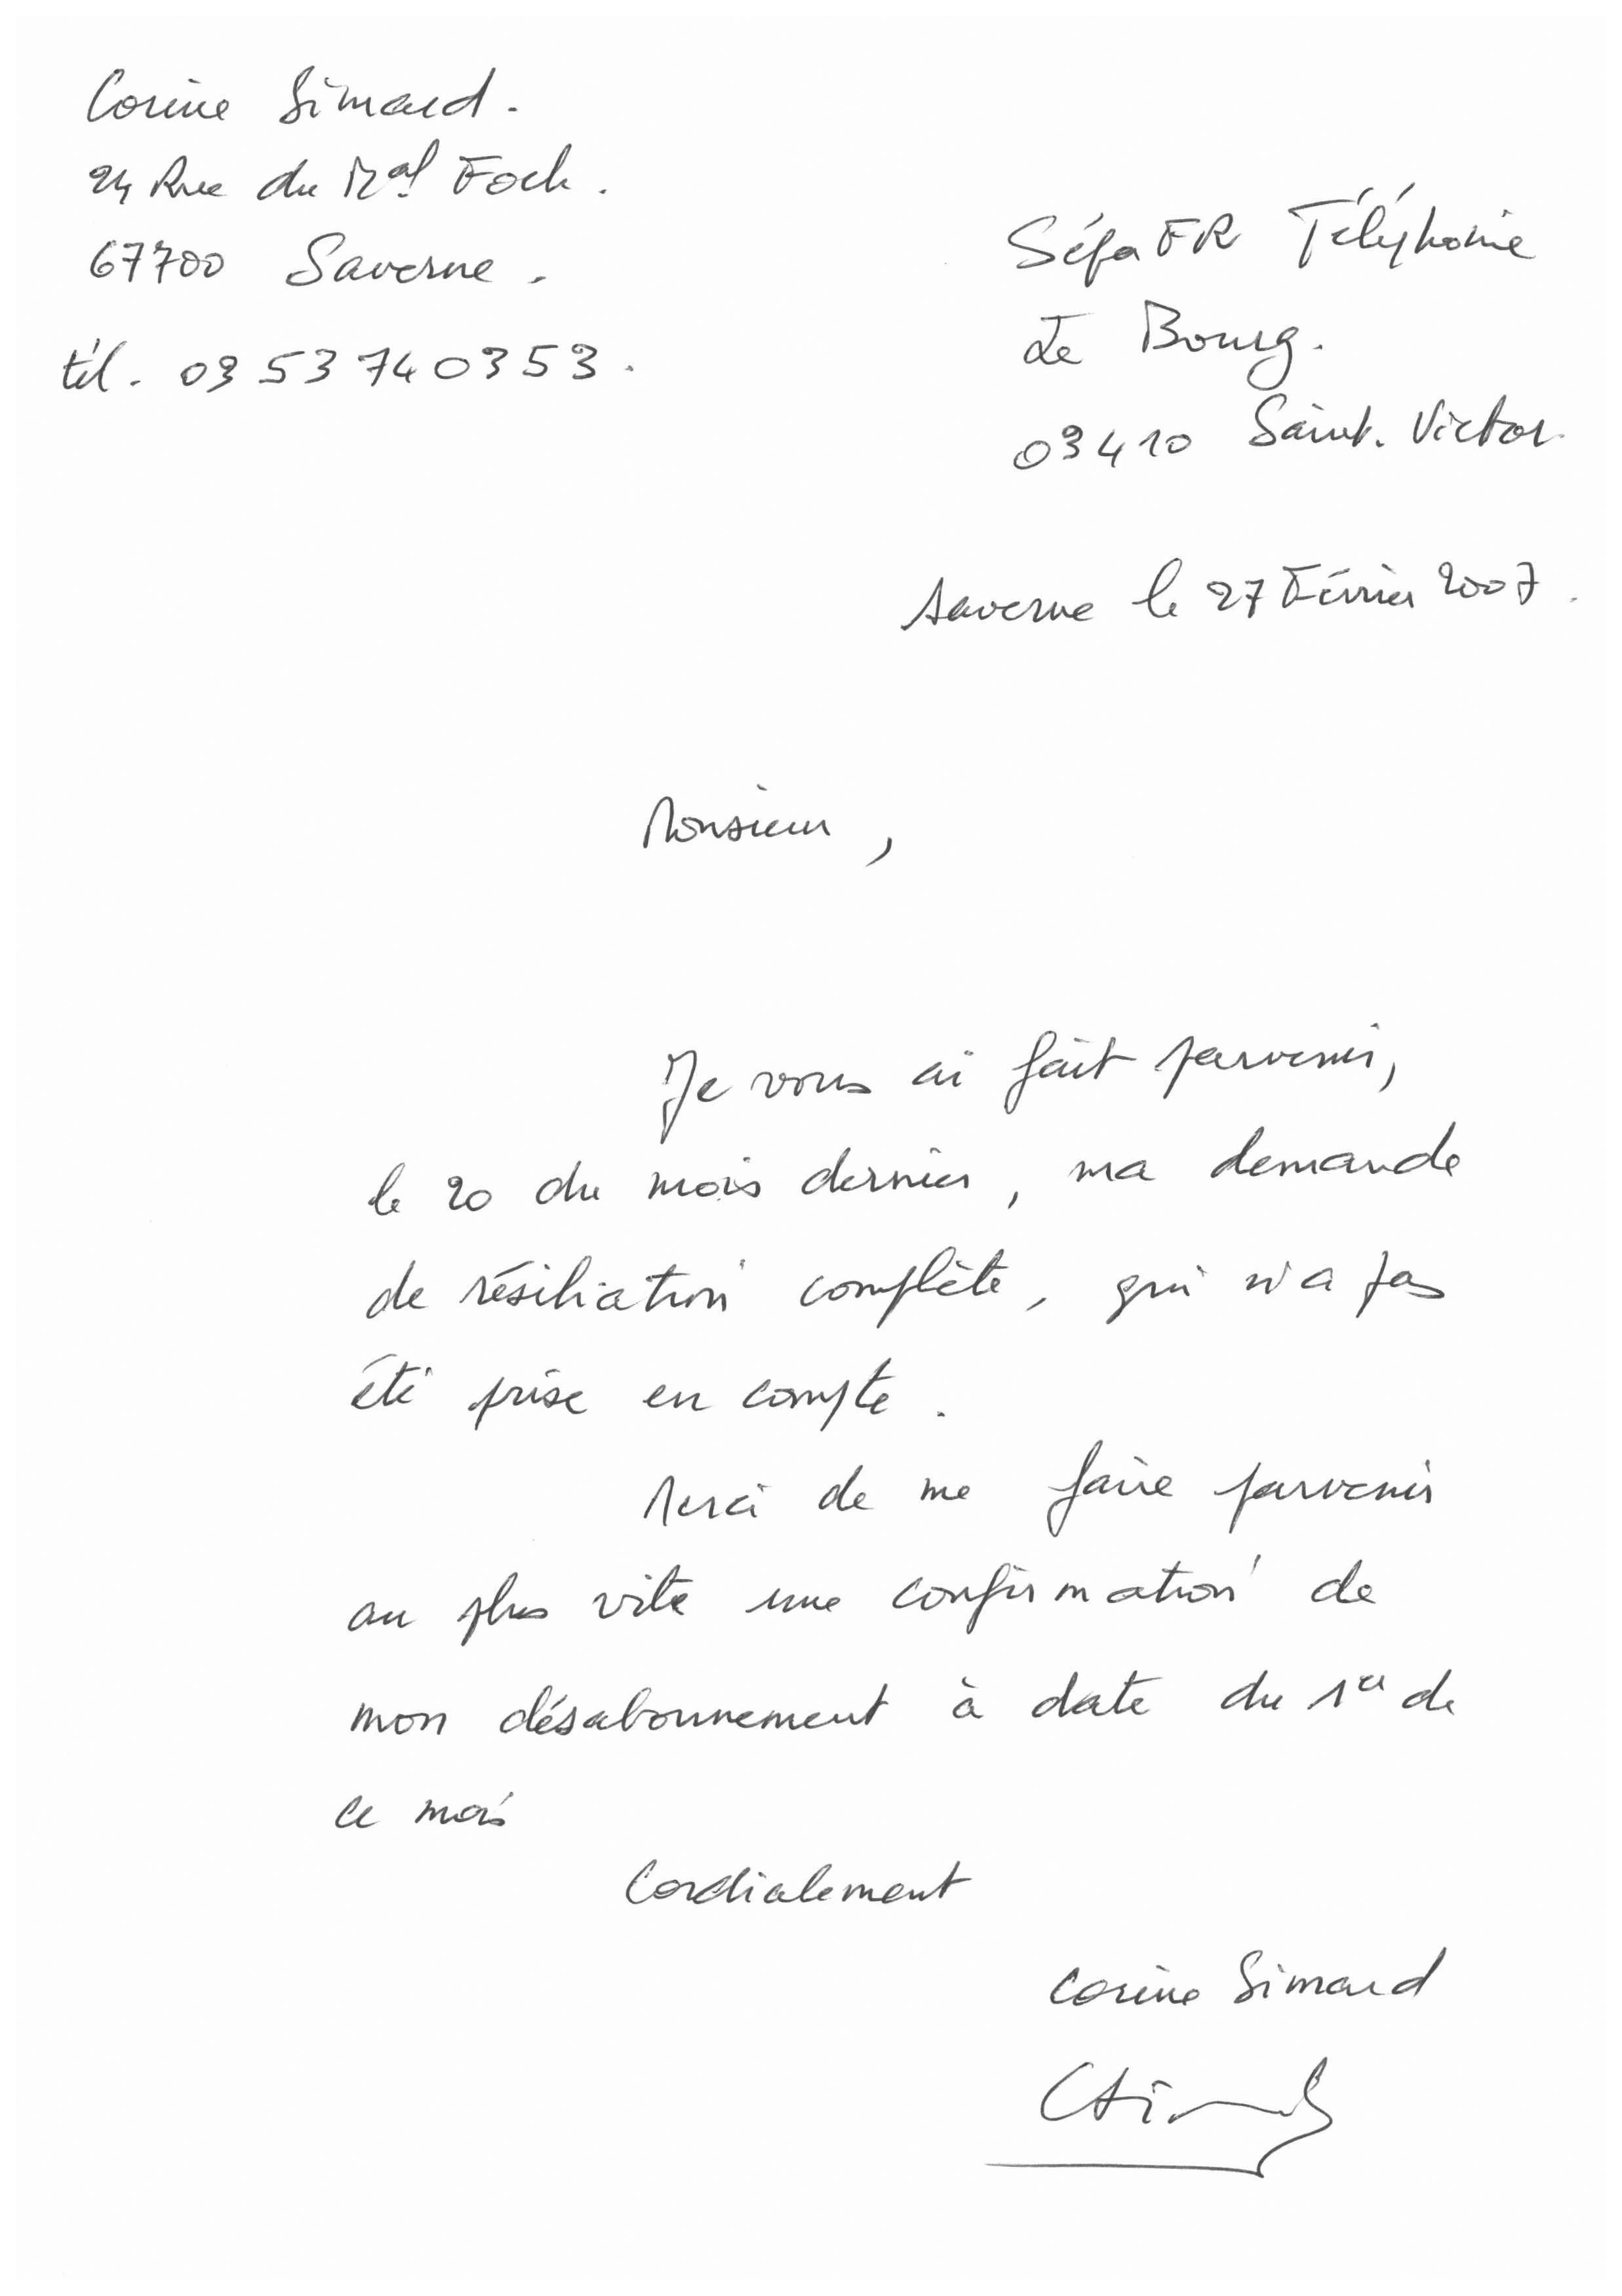 Corine Simard.
24 Rue du Mal Foch.
67700 Saverne.
tél. 03 53 74 03 53.
SéfaFR Téléphonie
Le Bourg.
03410 Saint-Victor
Saverne le 27 Février 2007.
Monsieur,
Je vous ai fait parvenir,
le 20 du mois dernier, ma demande
de résiliation complète, qui n'a pas
été prise en compte.
Merci de me faire parvenir
au plus vite une confirmation de
mon désabonnement à date du 1er de
ce mois
Cordialement
Corine Simard